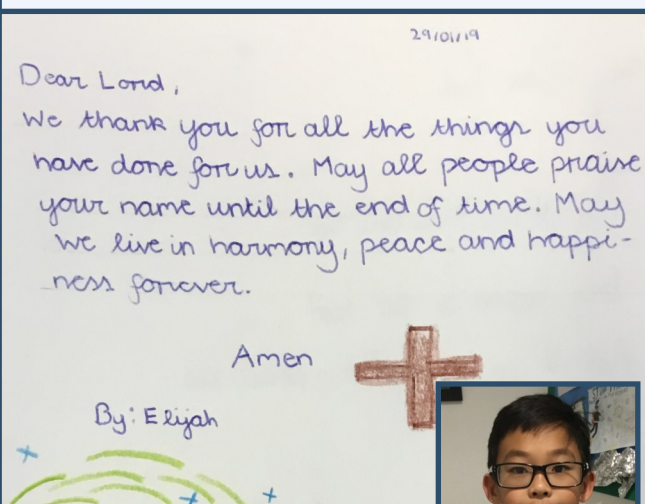 29/01/19
Dear Lord,
We thank you for all the things you
have done for us. May all people praise
your name until the end of time. May
we live in harmony, peace and happi-
ness forever.
Amen
By: Elijah